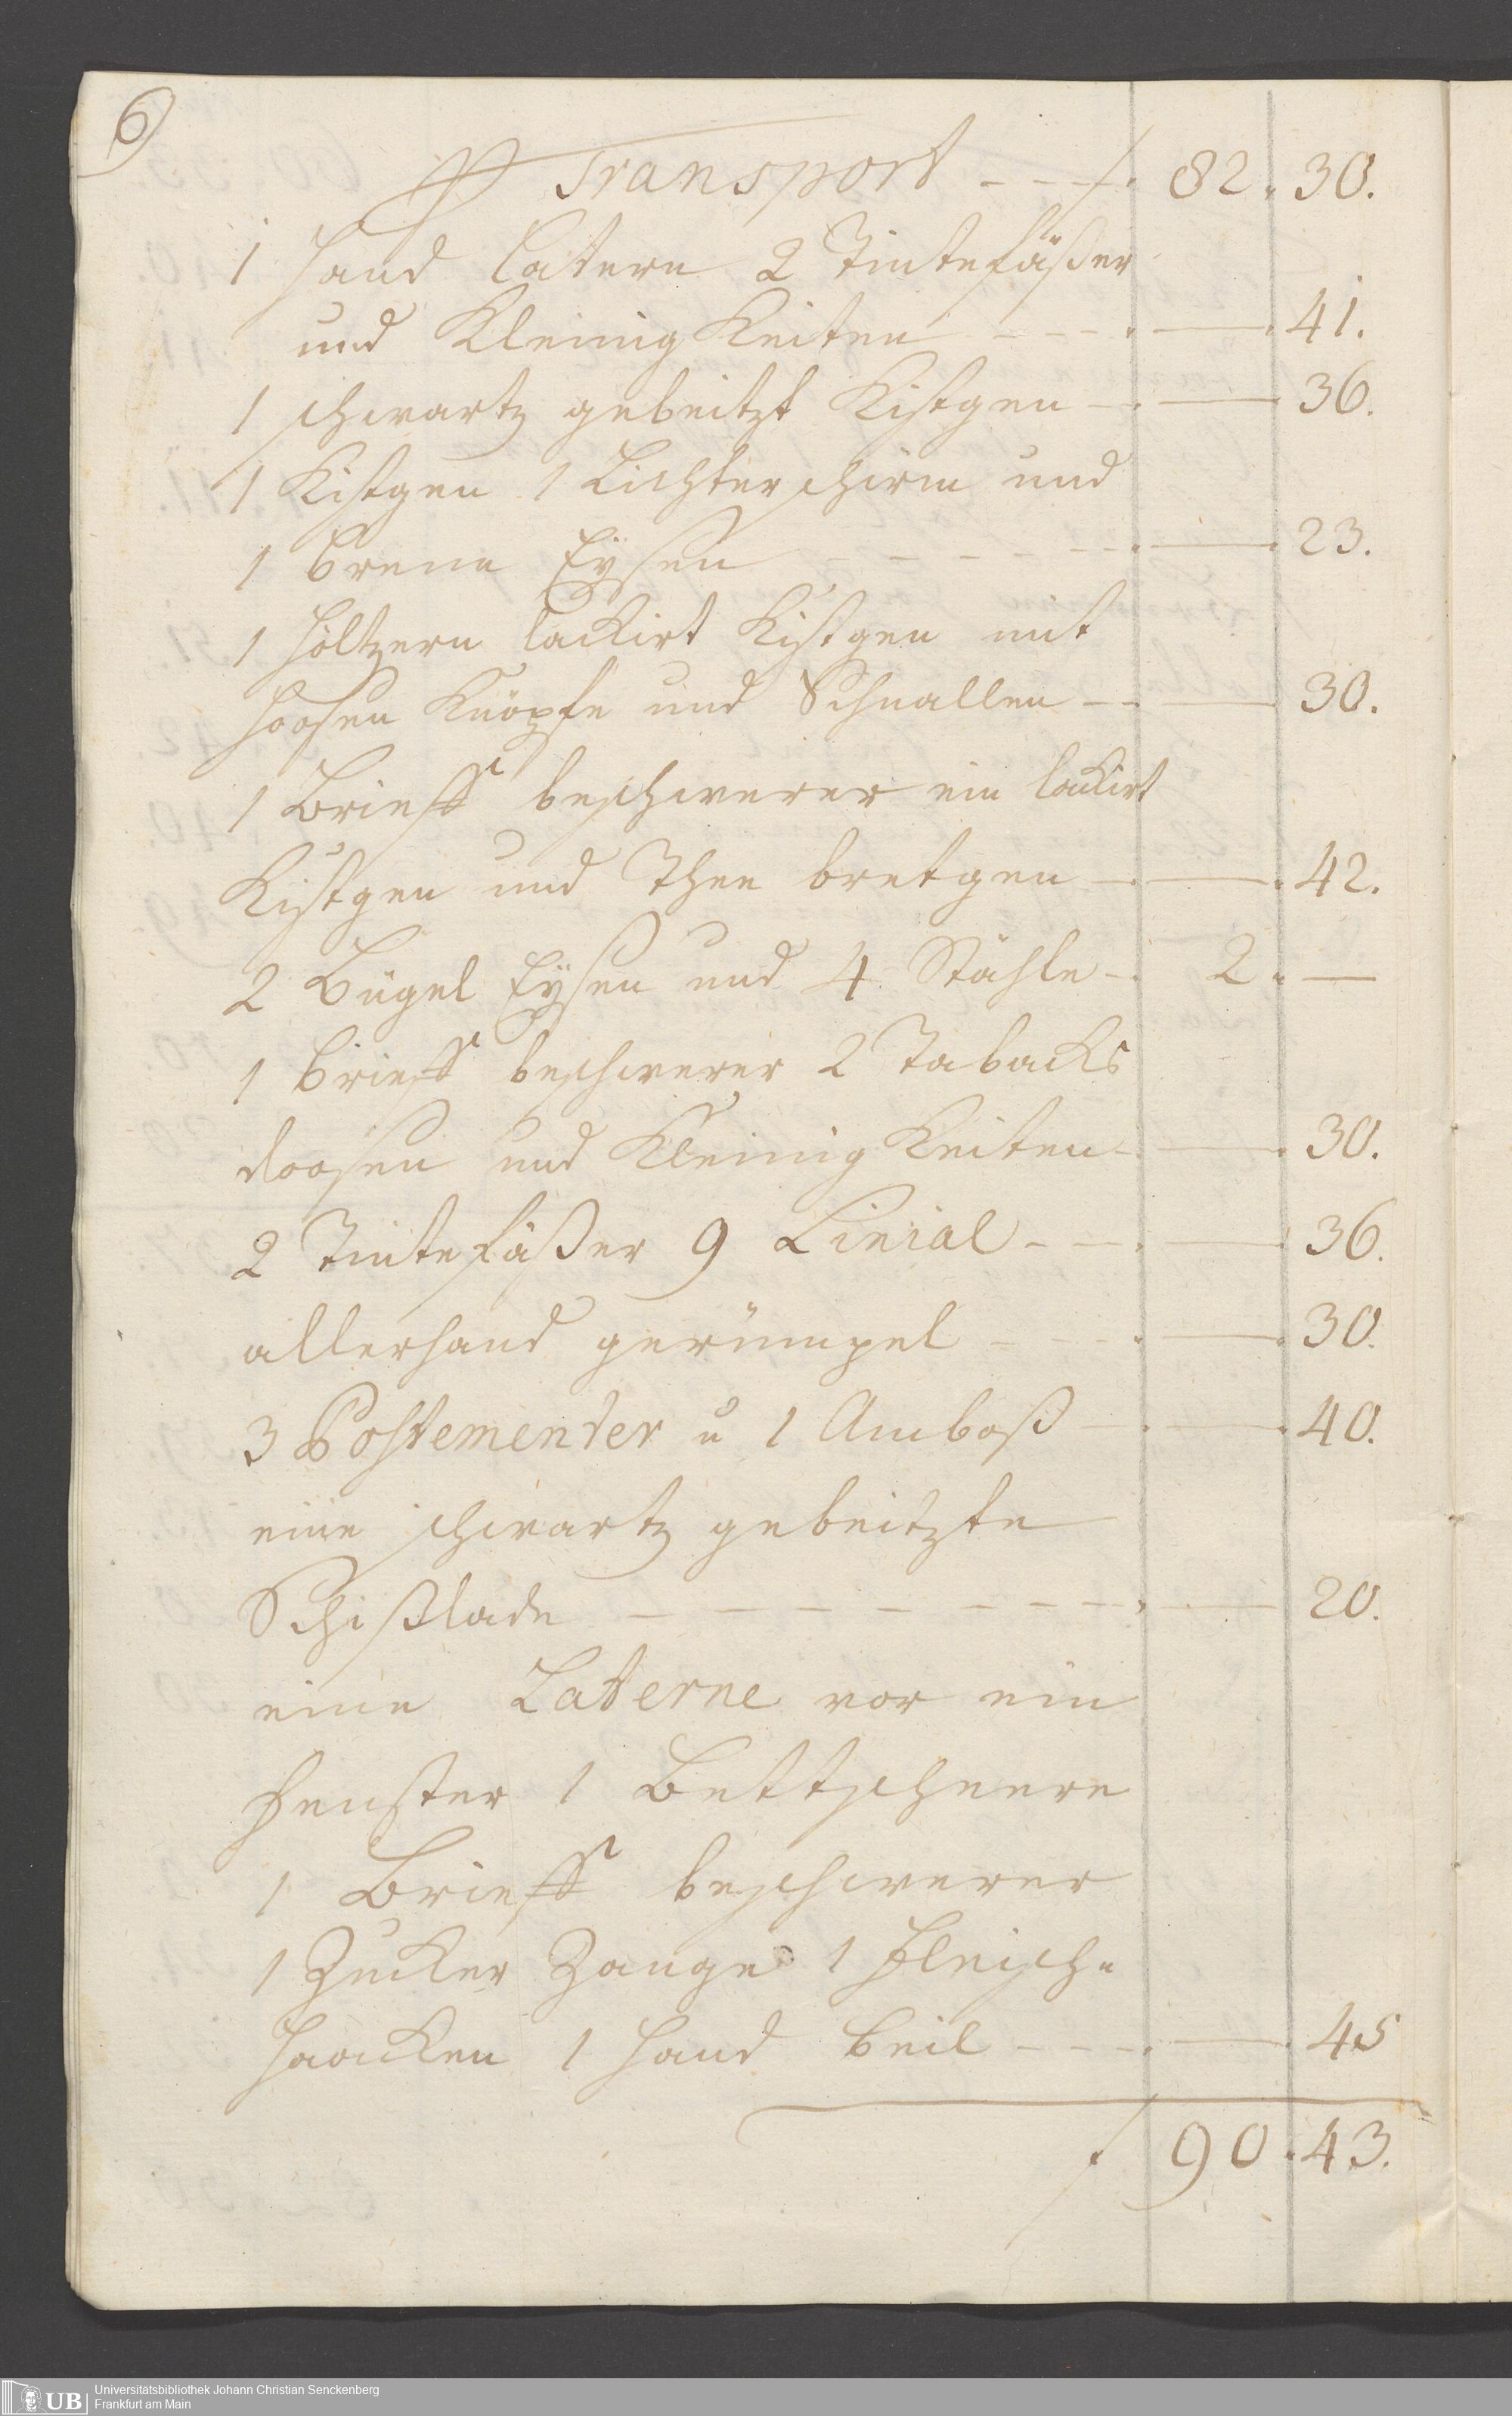 6)
Transport - - - f. 82. 30.
1 Hand Latern 2 Tintefäßer
und Kleinigkeiten - - - . — . 41.
1 schwartz gebeitzt Kistgen - . — 36.
1 Kistgen 1 Lichterschirm und
1 brenn Eysen - - - - - . — . 23.
1 höltzern lackirt Kistgen mit
hoosen Knöpfe und Schnallen - - — 30.
1 Brieff beschwerer ein lackirt
Kistgen und Thee bretgen - . — . 42.
2 Bügel Eysen und 4 Stähle - . 2 . —
1 brieff beschwerer 2 Tabacks
doosen und Kleinigkeiten - . — . 30.
2 Tintefäßer 9 Linial - - - . — 36.
allerhand gerümpel - - - . — . 30.
3 Postementer u 1 Amboß - . — . 40.
eine schwartz gebeitzte
Schißlade - - - - - - - - . — 20.
eine Laterne vor ein
Fenster 1 Bettscheere
1 Brieff beschwerer
1 Zucker Zange 1 Fleisch-
haacken 1 Hand beil - - - . — . 45
f 90. 43.
Universitätsbibliothek Johann Christian Senckenberg
Frankfurt am Main
UB